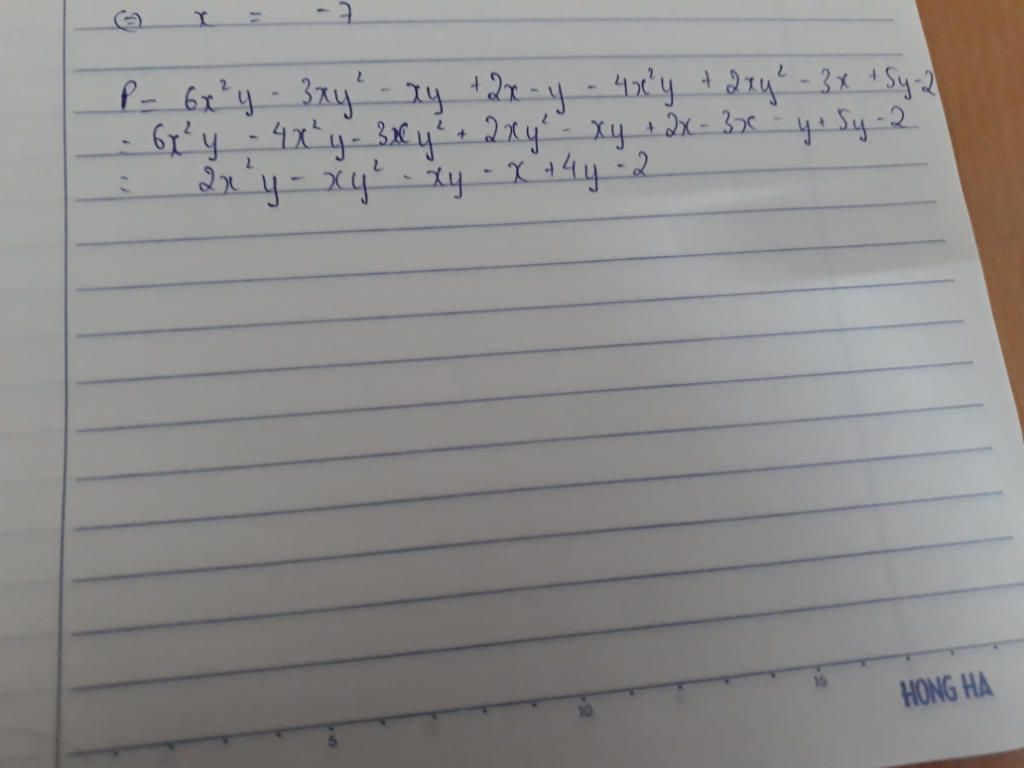 (=) x = -7
P = 6x²y - 3xy² - xy + 2x - y - 4x²y + 2xy² - 3x + 5y - 2
= 6x²y - 4x²y - 3xy² + 2xy² - xy + 2x - 3x - y + 5y - 2
= 2x²y - xy² - xy - x + 4y - 2
5 10 15
HONG HA